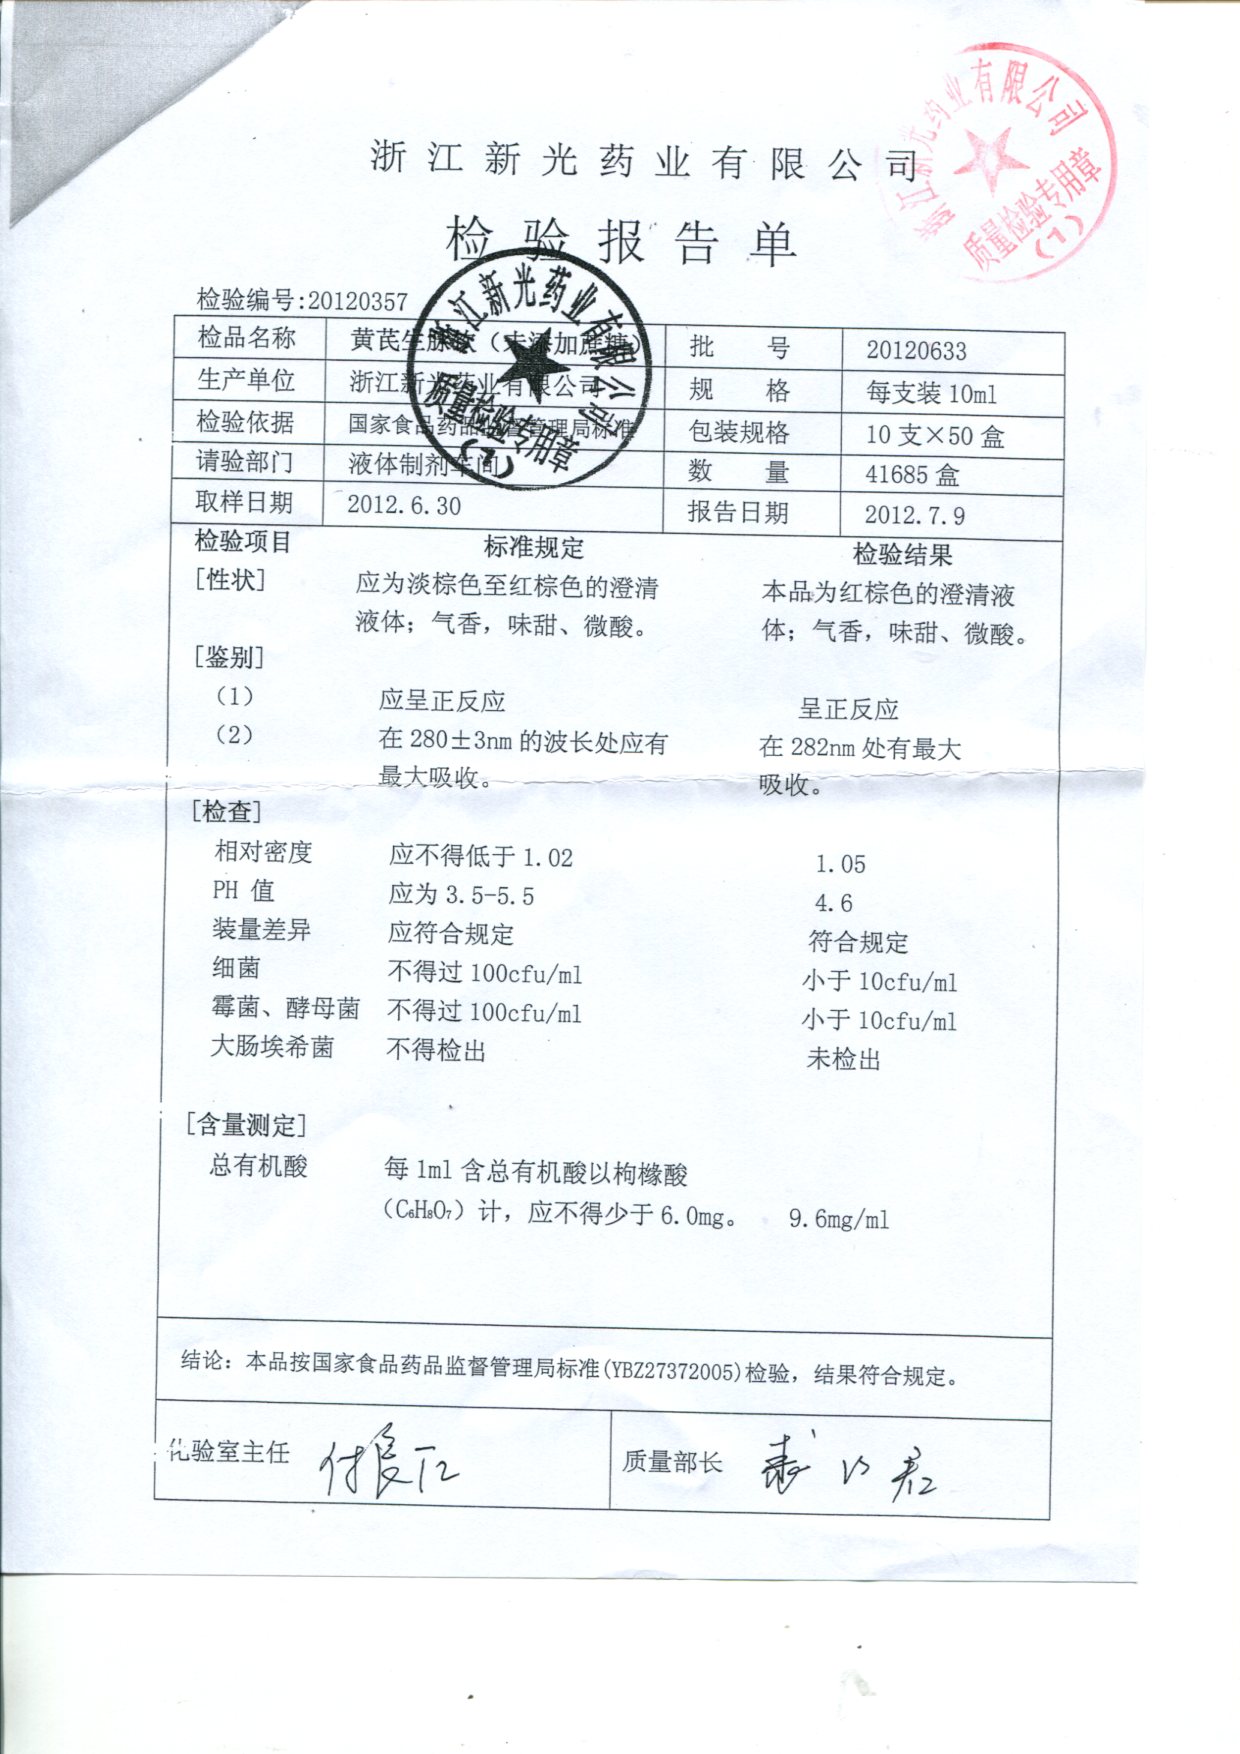 浙江新光药业有限公司
质量检验专用章
(1)
浙江新光药业有限公司
检验报告单
浙江新光药业有限公司
质量检验专用章
(1)
检验编号:20120357
检品名称 黄芪生脉饮（未添加蔗糖） 批 号 20120633
生产单位 浙江新光药业有限公司 规 格 每支装10ml
检验依据 国家食品药品监督管理局标准 包装规格 10支×50盒
请验部门 液体制剂车间 数 量 41685盒
取样日期 2012.6.30 报告日期 2012.7.9
检验项目 标准规定 检验结果
[性状] 应为淡棕色至红棕色的澄清 本品为红棕色的澄清液
液体；气香，味甜、微酸。 体；气香，味甜、微酸。
[鉴别]
（1） 应呈正反应 呈正反应
（2） 在280±3nm的波长处应有 在282nm处有最大
最大吸收。 吸收。
[检查]
相对密度 应不得低于1.02 1.05
PH 值 应为3.5-5.5 4.6
装量差异 应符合规定 符合规定
细菌 不得过100cfu/ml 小于10cfu/ml
霉菌、酵母菌 不得过100cfu/ml 小于10cfu/ml
大肠埃希菌 不得检出 未检出
[含量测定]
总有机酸 每1ml含总有机酸以枸橼酸
（C₆H₈O₇）计，应不得少于6.0mg。 9.6mg/ml
结论：本品按国家食品药品监督管理局标准(YBZ27372005)检验，结果符合规定。
化验室主任 质量部长